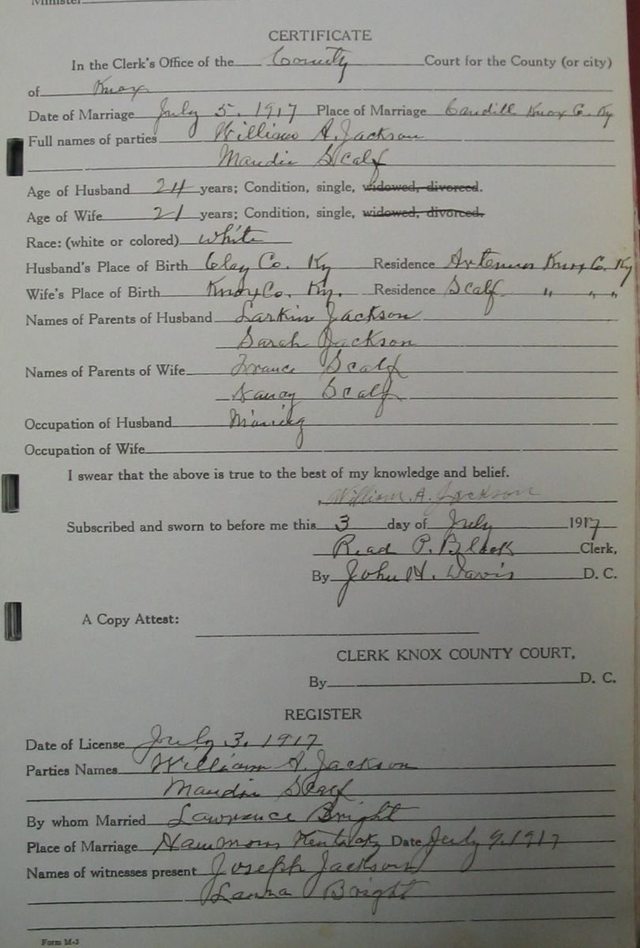 Minister
CERTIFICATE
In the Clerk's Office of the County Court for the County (or city)
of Knox
Date of Marriage July 5, 1917 Place of Marriage Caudill Knox Co. Ky
Full names of parties William A. Jackson
Maudie Scalf
Age of Husband 24 years; Condition, single, widowed, divorced.
Age of Wife 21 years; Condition, single, widowed, divorced.
Race: (white or colored) white
Husband's Place of Birth Clay Co. Ky Residence Artemus Knox Co. Ky
Wife's Place of Birth Knox Co. Ky. Residence Scalf " " "
Names of Parents of Husband Larkin Jackson
Sarah Jackson
Names of Parents of Wife Scalf
Nancy Scalf
Occupation of Husband Mining
Occupation of Wife
I swear that the above is true to the best of my knowledge and belief.
William A. Jackson
Subscribed and sworn to before me this 3 day of July 1917
Read P. Black Clerk,
By John H. Davis D. C.
A Copy Attest:
CLERK KNOX COUNTY COURT,
By D. C.
REGISTER
Date of License July 3, 1917
Parties Names William A. Jackson
Maudie Scalf
By whom Married Lawrence Bright
Place of Marriage Kentucky Date July 9, 1917
Names of witnesses present Joseph Jackson
Laura Bright
Form M-3